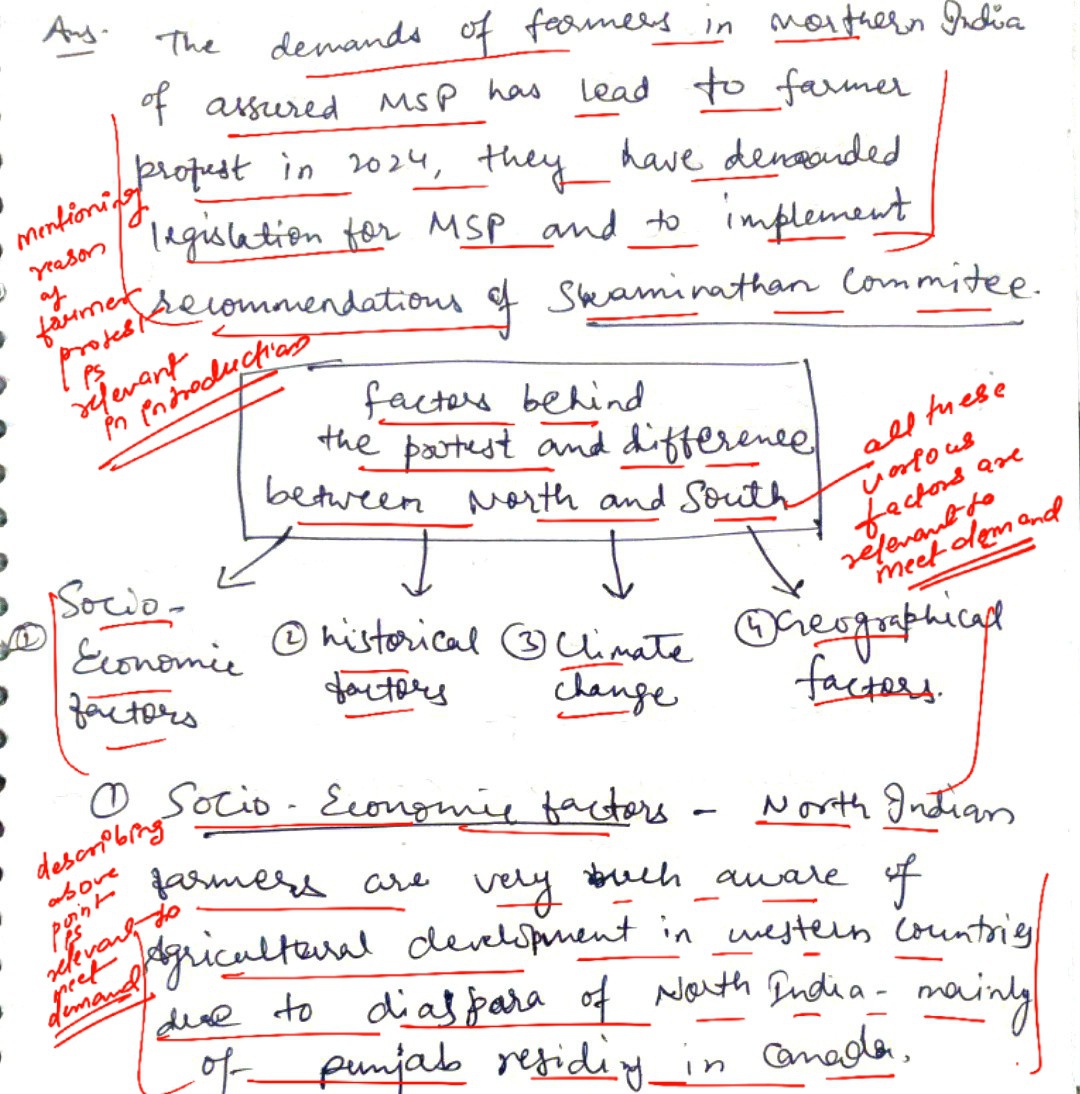 Ans. The demands of farmers in northern India
of assured MSP has lead to farmer
protest in 2024, they have demanded
legislation for MSP and to implement
recommendations of Swaminathan Commitee.
mentioning
reason
of
farmer
protest
is
relevant
in introduction
factors behind
the protest and difference
between North and South
all these
various
factors are
relevant to
meet demand
① Socio-
Economic
factors
② historical
factors
③ Climate
change
④ Geographical
factors.
① Socio-Economic factors - North Indian
farmers are very much aware of
Agricultural development in western countries
due to diaspara of North India - mainly
of punjab residing in Canada.
describing
above
point
is
relevant to
meet
demand